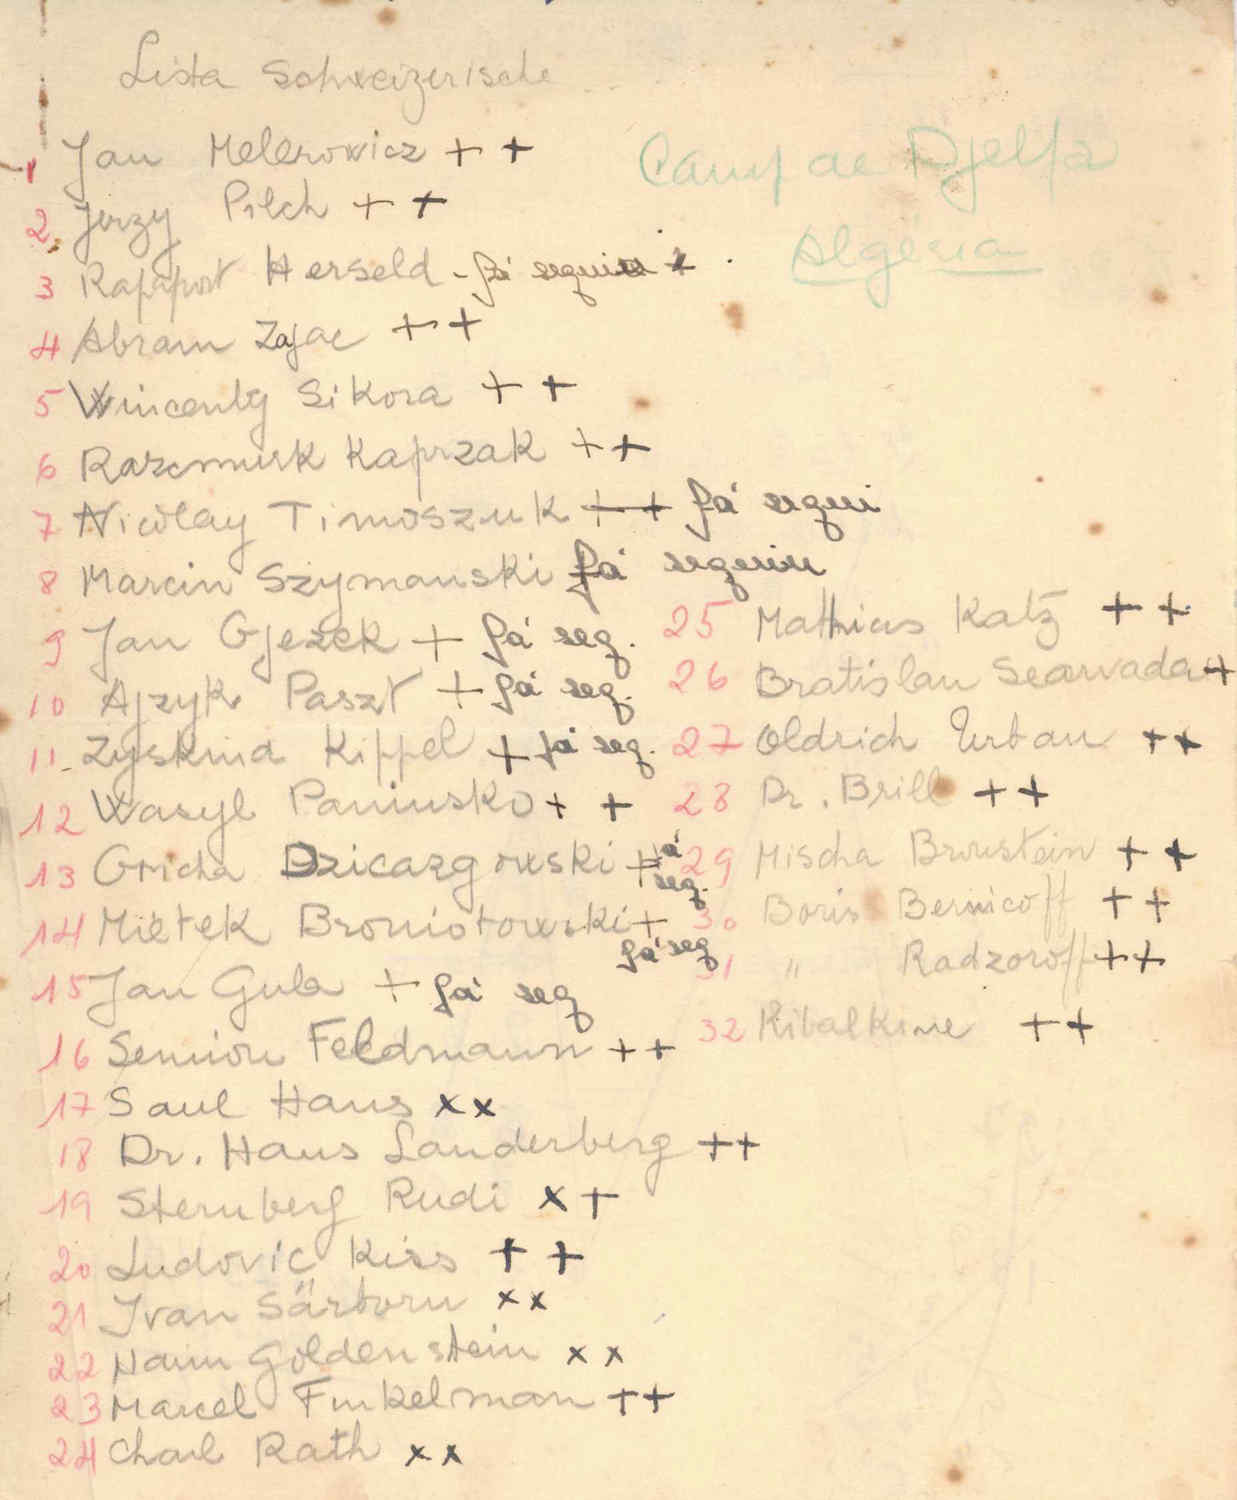 Lista Schweizerische
Camp de Djelfa
Algéria
1 Jan Melerowicz + +
2 Jerzy Pilch + +
3 Rapaport Herseld - já seguiu +
4 Abram Zajac + +
5 Wincenty Sikora + +
6 Kaprzak + +
7 Nicolay Timoszuk + + já segui
8 Marcin Szymanski já seguiu
9 Jan Gjezek + já seg.
10 Ajzyk Paszt + já seg.
11 Zyskind Kippel + já seg.
12 Wasyl Paniusko + +
13 Gricha Dzicazgowski + já seg.
14 Mietek Broniotowski + já seg
15 Jan Gula + já seg
16 Feldmann + +
17 Saul Hans x x
18 Dr. Hans Landerberg + +
19 Sternberg Rudi x +
20 Ludovic Kiss + +
21 Ivan Särtoru x x
22 Haim Goldenstein x x
23 Marcel Finkelman + +
24 Charl Rath x x
25 Mathias Katz + +
26 Bratislav Searvada +
27 Oldrich Urban + +
28 Dr. Brill + +
29 Mischa Bronstein + +
30 Boris Bernicoff + +
31 " Radzoroff + +
32 Ribalkine + +